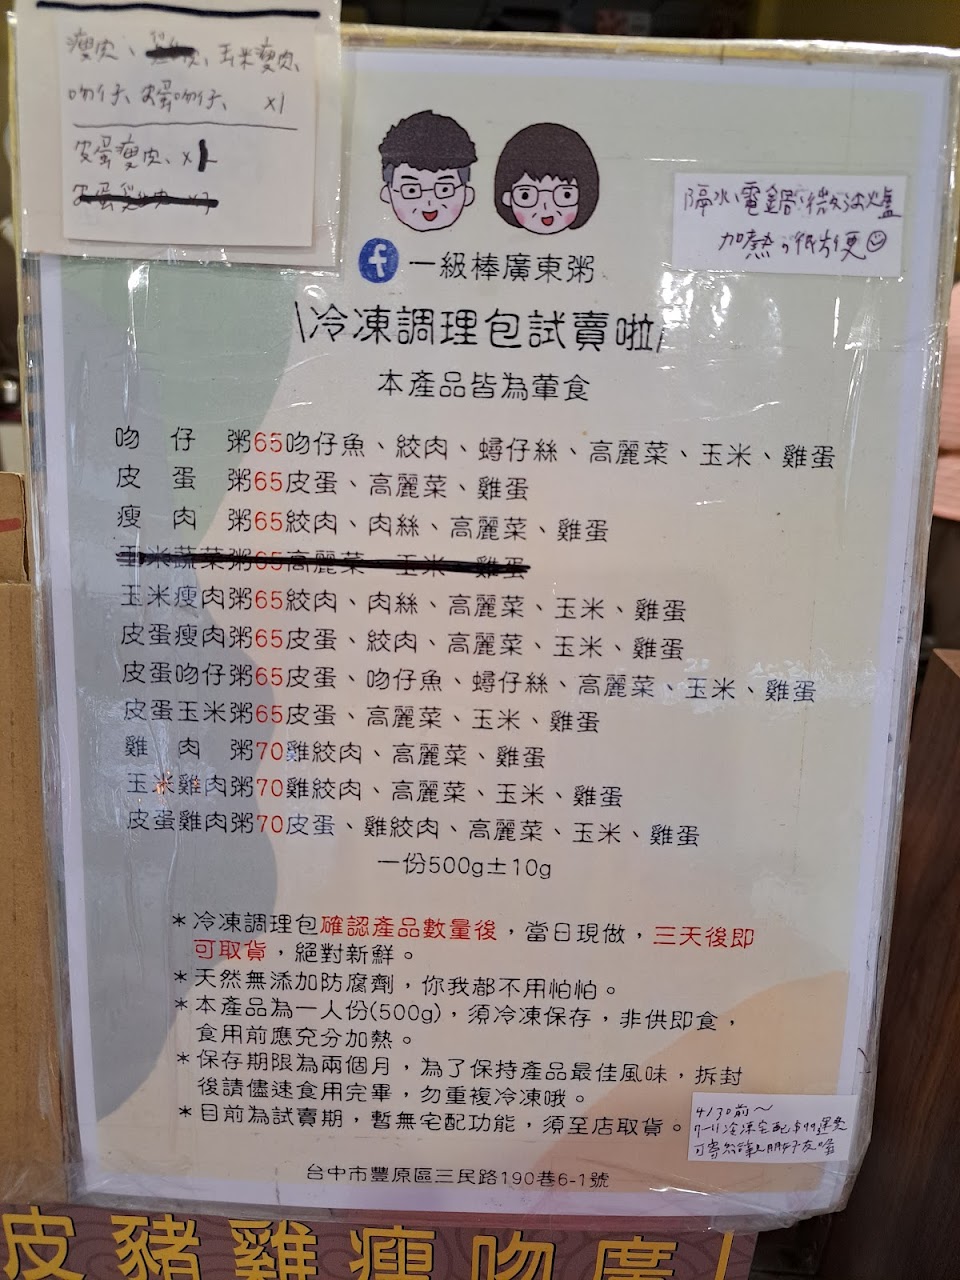 瘦肉、玉米瘦肉、
吻仔、皮蛋吻仔、 x1
皮蛋瘦肉、x1
隔水、電鍋、微波爐
加熱,很方便☺
f 一級棒廣東粥
\冷凍調理包試賣啦/
本產品皆為葷食
吻仔粥65吻仔魚、絞肉、蟳仔絲、高麗菜、玉米、雞蛋
皮蛋粥65皮蛋、高麗菜、雞蛋
瘦肉粥65絞肉、肉絲、高麗菜、雞蛋
玉米蔬菜粥65高麗菜、玉米、雞蛋
玉米瘦肉粥65絞肉、肉絲、高麗菜、玉米、雞蛋
皮蛋瘦肉粥65皮蛋、絞肉、高麗菜、玉米、雞蛋
皮蛋吻仔粥65皮蛋、吻仔魚、蟳仔絲、高麗菜、玉米、雞蛋
皮蛋玉米粥65皮蛋、高麗菜、玉米、雞蛋
雞肉粥70雞絞肉、高麗菜、雞蛋
玉米雞肉粥70雞絞肉、高麗菜、玉米、雞蛋
皮蛋雞肉粥70皮蛋、雞絞肉、高麗菜、玉米、雞蛋
一份500g±10g
*冷凍調理包確認產品數量後，當日現做，三天後即
可取貨，絕對新鮮。
*天然無添加防腐劑，你我都不用怕怕。
*本產品為一人份(500g)，須冷凍保存，非供即食，
食用前應充分加熱。
*保存期限為兩個月，為了保持產品最佳風味，拆封
後請儘速食用完畢，勿重複冷凍哦。
*目前為試賣期，暫無宅配功能，須至店取貨。
4/30前~
7-11冷凍宅配
可寄給親朋好友喔
台中市豐原區三民路190巷6-1號
皮豬雞瘦吻廣